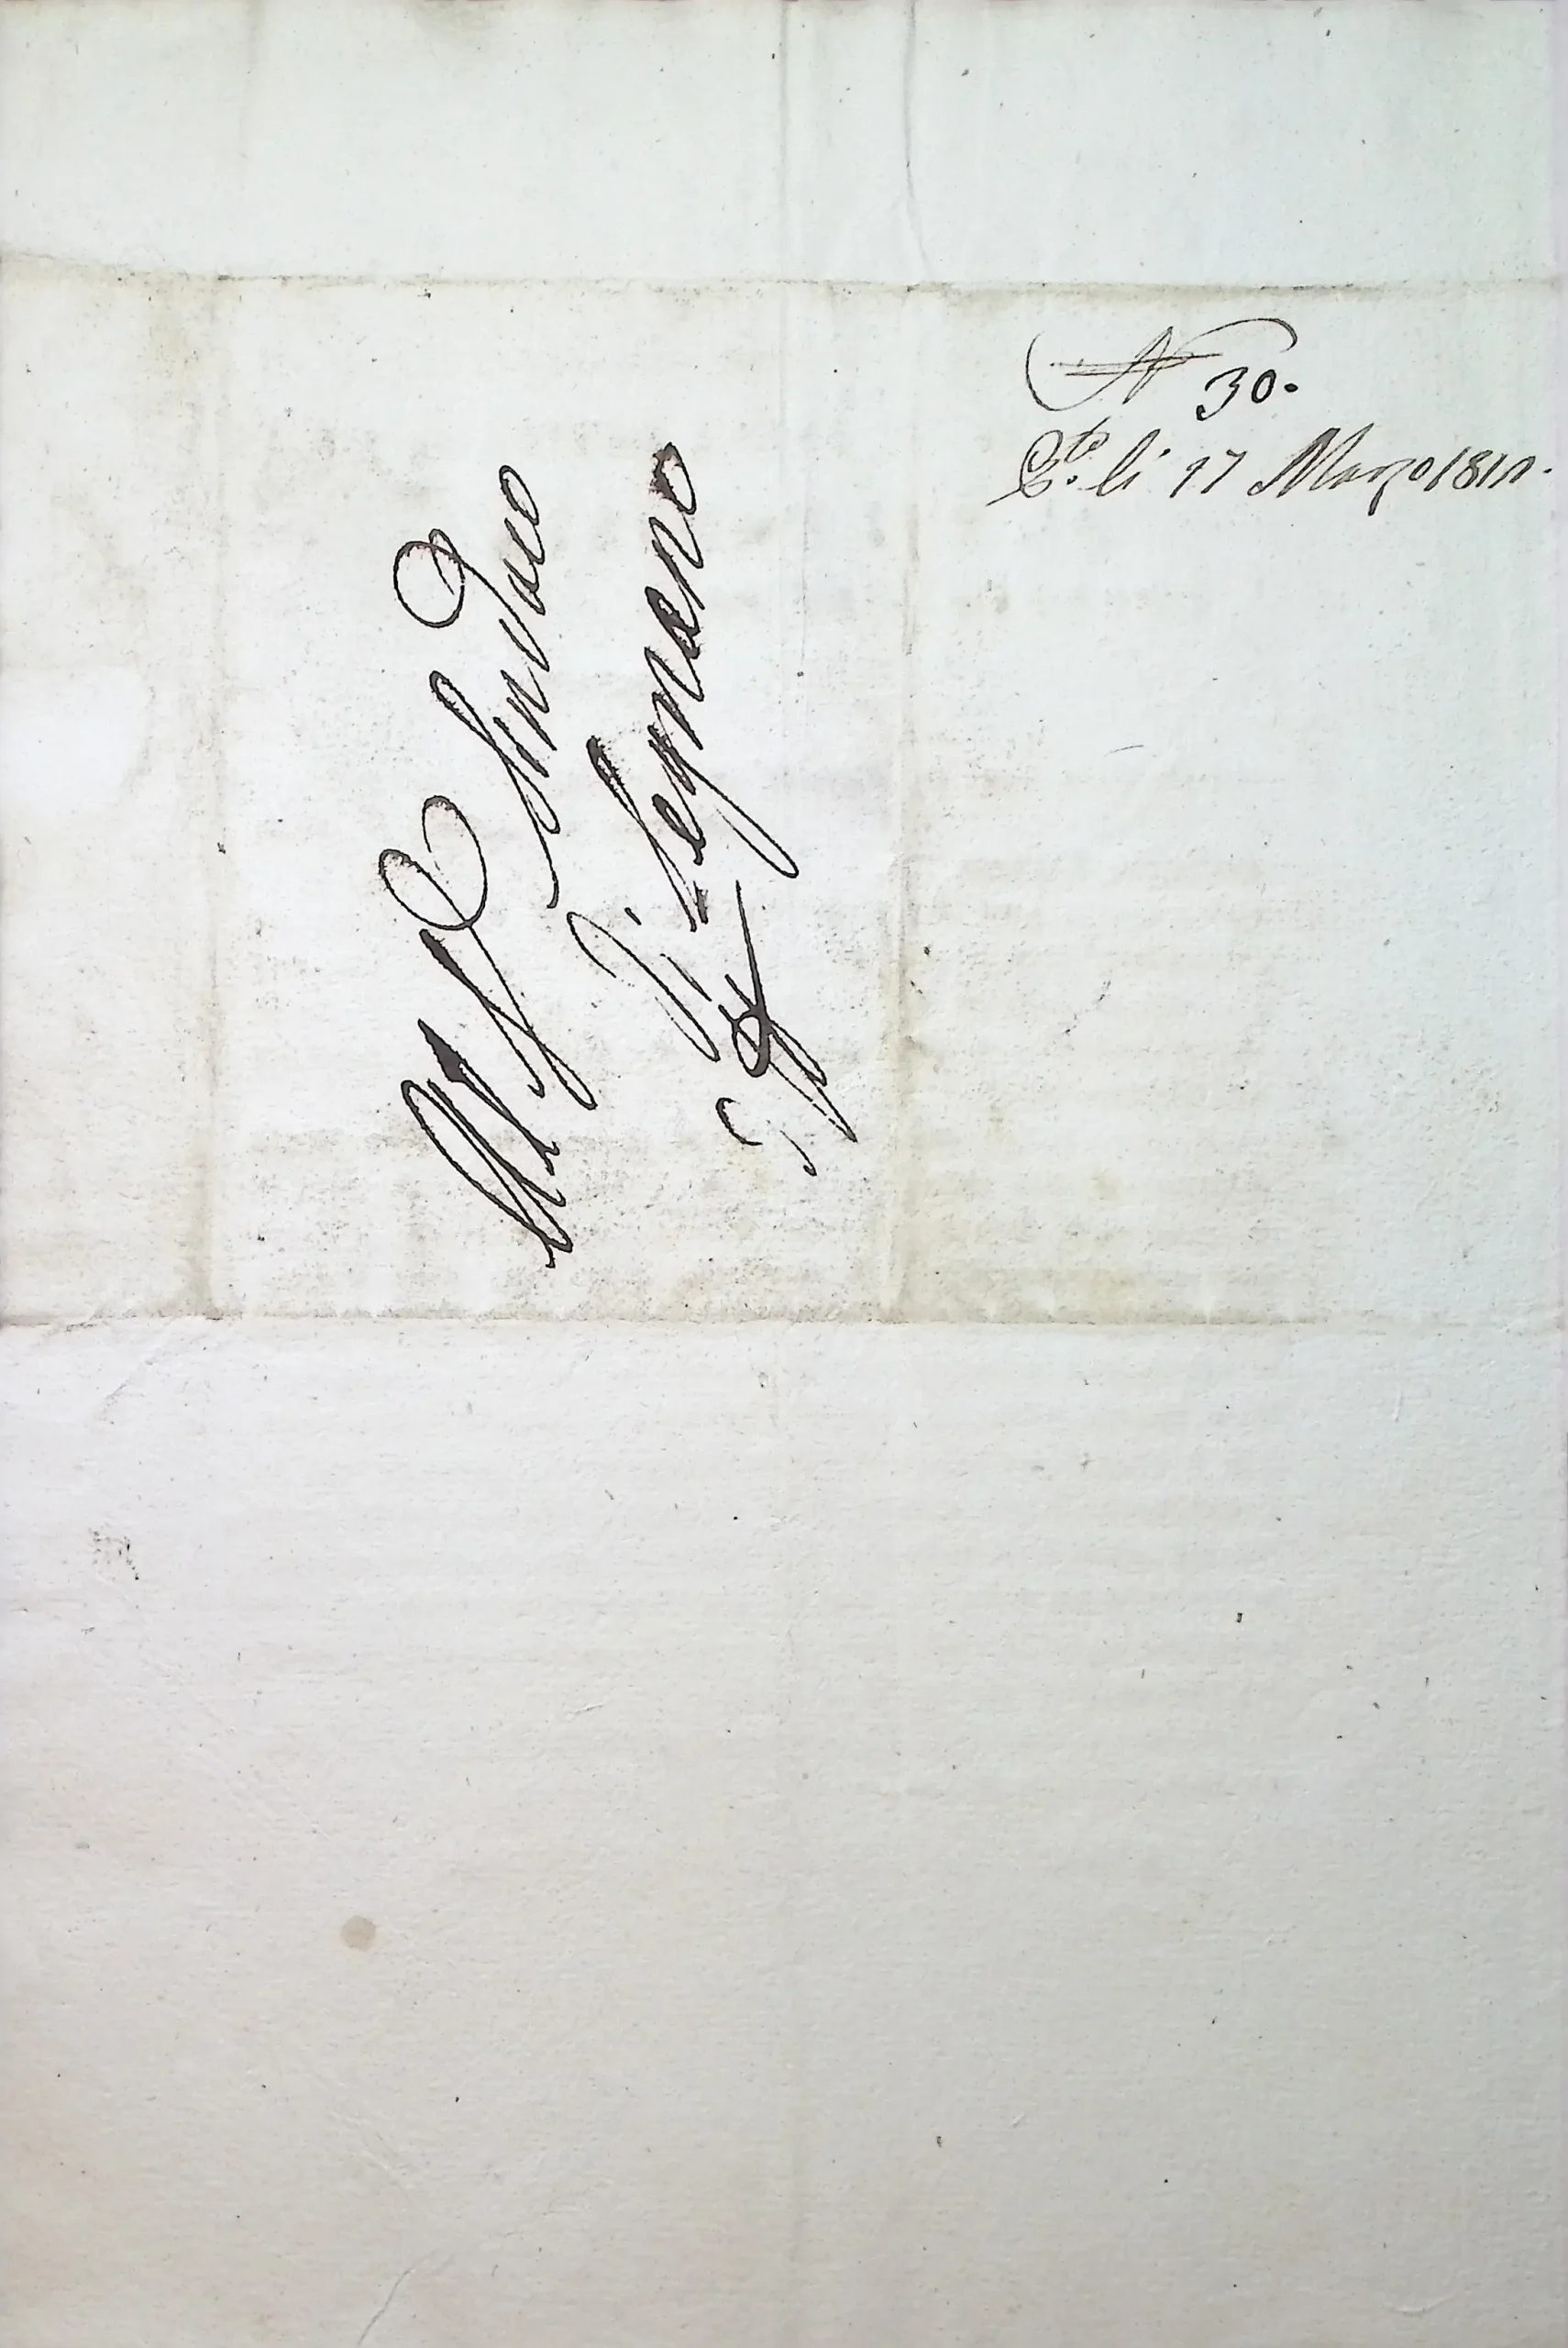 N 30.
li 17 Marzo 1811.
Al Sindaco
di Legnano